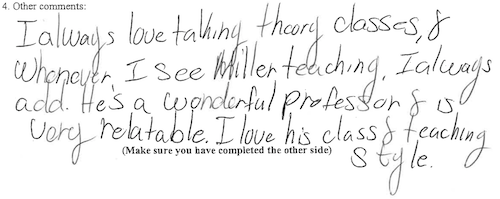 4. Other comments:
I always love talking theory classes, &
Whenever I see Miller teaching, I always
add. He's a wonderful professor & is
very relatable. I love his class & teaching
(Make sure you have completed the other side)
style.